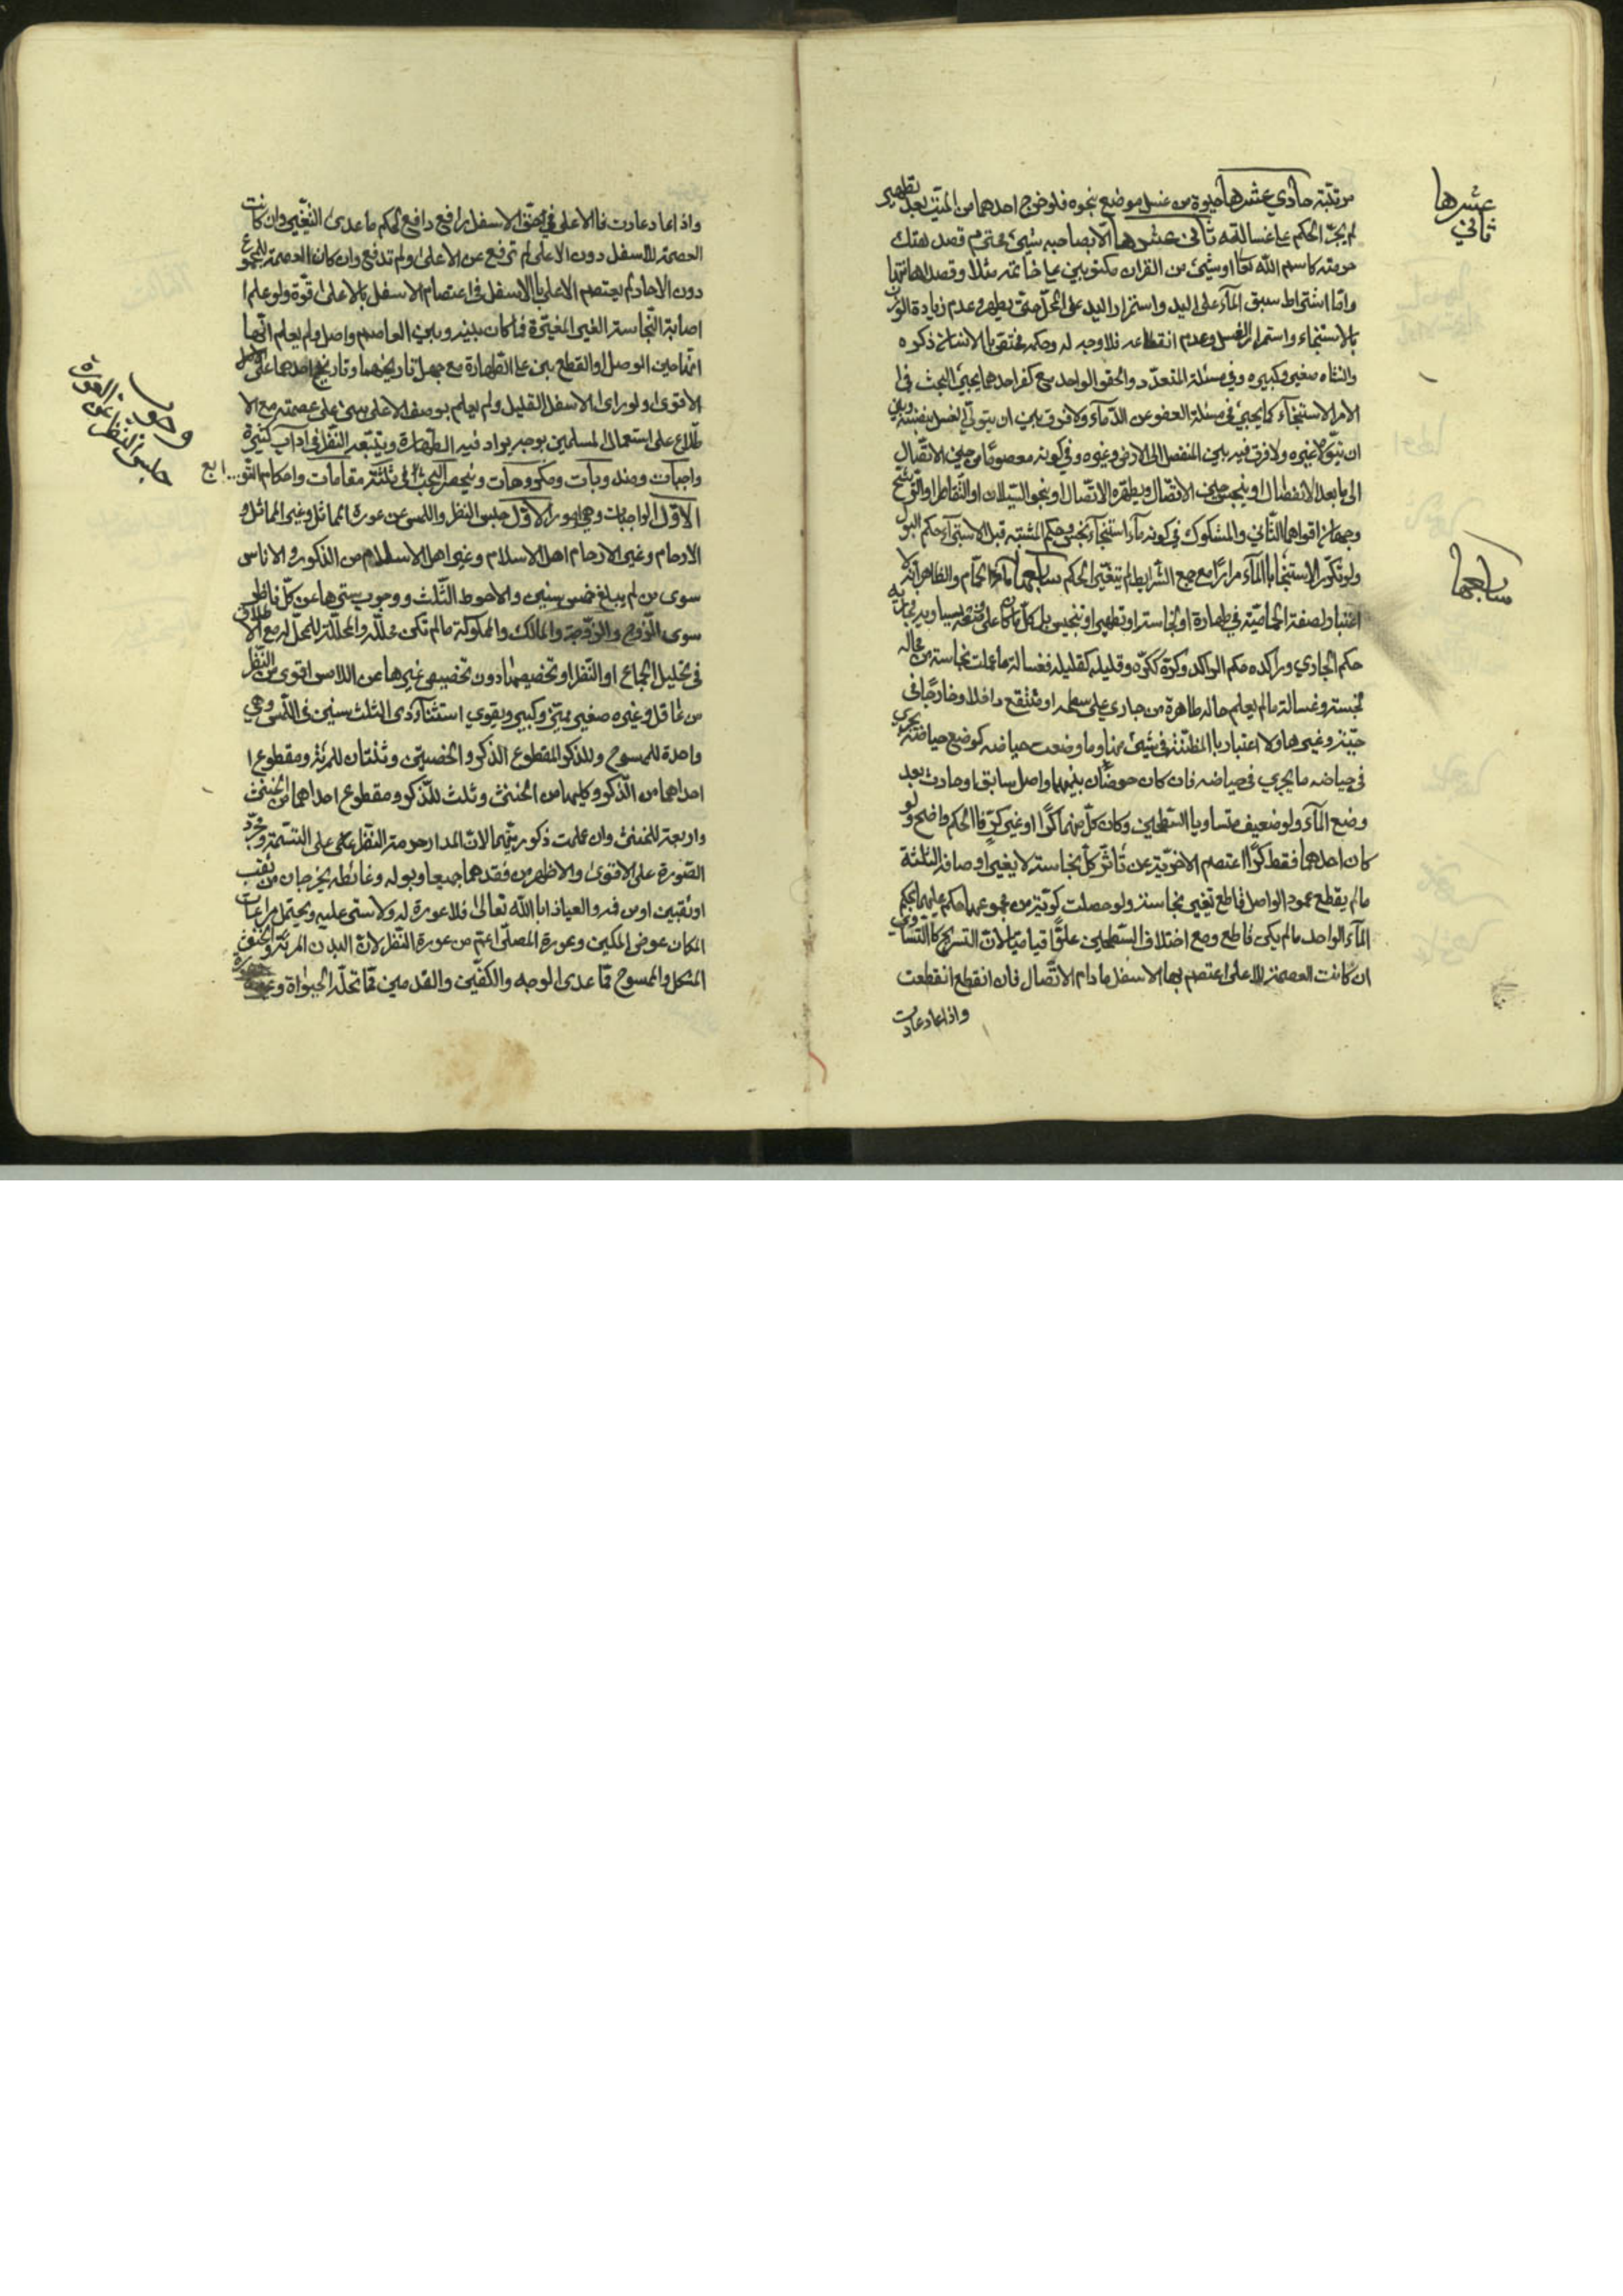 مرتبته حادي عشرها حيوة من غسل موضع نجوه فلو خرج احدهما من الميت بعد تطهير
لم يجر الحكم على غسالته ثاني عشرها الا يصاحبه شيئ محترم قصد هتك
حرمته كاسم الله تعا او شيئ من القران مكتوبين على خاتمه مثلا وقصد اهانتها
وامّا اشتراط سبق المآء على اليد واستمرار اليد على المحلّ حتى يطهر وعدم زيادة الوزن
بالاستنجاء واستمرار الغسل وعدم انقطاعه فلا وجه له وحكمه مختص بالانسان ذكره
وانثاه صغيره وكبيره وفي مسئلة المتعدّد والحقو الواحد مع كفر احدهما يجيئ البحث في ا
لامر الاستنجآء كما يجيئ في مسئلة العفو عن الدّمآء ولا فرق بين ان يتولّى الغسل بنفسه وبين
ان يتولّاه غيره ولا فرق فيه بين المنفصل الى الارض وغيره وفي كونه معصومًا من حين الاتّصال
الى ما بعد الانفصال او ينجس حين الاتّصال ويطهره الاتّصال او بنحو السّيلان او التّقاطر او التّرشّح
وجهان اقواهما الثّاني والمشكوك في كونه مآء استنجآء نجس وحكم المشتبه قبل الاستبرآء حكم البول
ولو تكرّر الاستنجا بالمآء مرارًا مع جمع الشّرايط لم يتغيّر الحكم سابعها مآء الحمّام والظاهر انّه لا
اعتبار لصفة الحماميّة في طهارة او نجاسة او تطهير او تنجيس بل كلّ ماكان على
حكم الجاري وراكده حكم الراكد وكرّه ككرّه وقليله كقليله فغسالة ما علمت نجاسة من محاله
نجسة وغسالة مالم يعلم حاله طاهرة من جاري على سطحه او منتقع داخلا وخارجًا في
جيّة وغيرها ولا اعتبار بالمظنّة في شيئ منها وما وضعت حياضه كوضع حياضه يجري
في حياضه ما يجري في حياضه فان كان حوضان بينهما واصل سابق او حادث بعد
وضع المآء ولو ضعيف متساويا السّطحين وكان كلّ منهما كرًّا او غير كرّ فالحكم واضح ولو
كان احدهما فقط كرًّا اعتصم الاخر به عن تأثّر كلّ نجاسة لا يغير اوصافه الثلثة
مالم يقطع عمود الواصل قاطع تغير نجاسة ولو حصلت كرّية من مجموعهما حكم عليهما بحكم
المآء الواحد مالم يكن قاطع ومع اختلاف السّطحين علوًّا قياميًا لانّ التسريح كالتّساوي
ان كانت العصمة للاعلى اعتصم بها الاسفل مادام الاتّصال فان انقطع انقطعت
واذا عاد عادت
عشرها
ثاني
سابعها
واذا عاد عادت فالاعلى في حقّ الاسفل رافع دافع لحكم ما عدى التّغيير وان كانت
العصمة للاسفل دون الاعلى لم ترفع عن الاعلى ولم تدفع وان كان العصمة للمجموع
دون الاحاد لم يعتصم الاعلى بالاسفل وفي اعتصام الاسفل بالاعلى قوّة ولو علم ا
صابة النّجاسة الغير المغيّرة فاكان بينه وبين العاصم واصل ولم يعلم انّها
امّا حين الوصل او القطع بنى على الطّهارة مع جهل تاريخهما وتاريخ احدهما على
الاقوى ولو راى الاسفل القليل ولم يعلم بوصف الاعلى بنى على عصمته مع الا
طّلاع على استعمال المسلمين بوجه يراد فيه الطّهارة ويتبعه النّظر في اداب كثيرة
واجبات ومندوبات ومكروهات وينحصر البحث في ثلثة مقامات واحكام
الاوّل الواجبات وهي امور الاوّل حبس النظر واللمس عن عورة المماثل وغير المماثل و
الارحام وغير الارحام اهل الاسلام وغير اهل الاسلام من الذكور والاناس
سوى من لم يبلغ خمس سنين والاحوط الثّلث ووجوب سترها عن كلّ ناظر
سوى الزّوج والزّوجة والمالك والمملوكة مالم تكن محللة والمحلّلة للمحلّل له مع الاطلاق
في تحليل الجماع او النّظر او تخصيصها دون تخصيص غيرها عن اللامس اقوى من النّظر
من عاقل وغيره صغير مميّز وكبير ويقوي استثنآء ذي الثلث سنين في اللّمس وهي
واحدة للممسوح وللذكر المقطوع الذكر والخصيتين وثنتان للمرئة ومقطوع ا
حداهما من الذّكر وكليهما من الخنثى وثلث للذّكر ومقطوع احداهما من الخنثى
واربعة للخنثى وان علمت ذكوريّتها لانّ المدار حرمة النظر على التسمية ومجرّد
الصّورة على الاقوى والاظهر من فقدهما جميعا وبوله وغائطه يخرجان من ثقب
او ثقبين او من فمه والعياذ بالله تعالى فلا عورة له ولا ستر عليه ويحتمل مراعات
المكان عوض المكين وعورة المصلّي اعمّ من عورة النّظر لانّ البدن المرئة والخنثى
المشكل والممسوح ممّا عدى الوجه والكفّين والقدمين ممّا تحلّه الحيواة وعورة
وجوب
حبس النظر عن
العورة